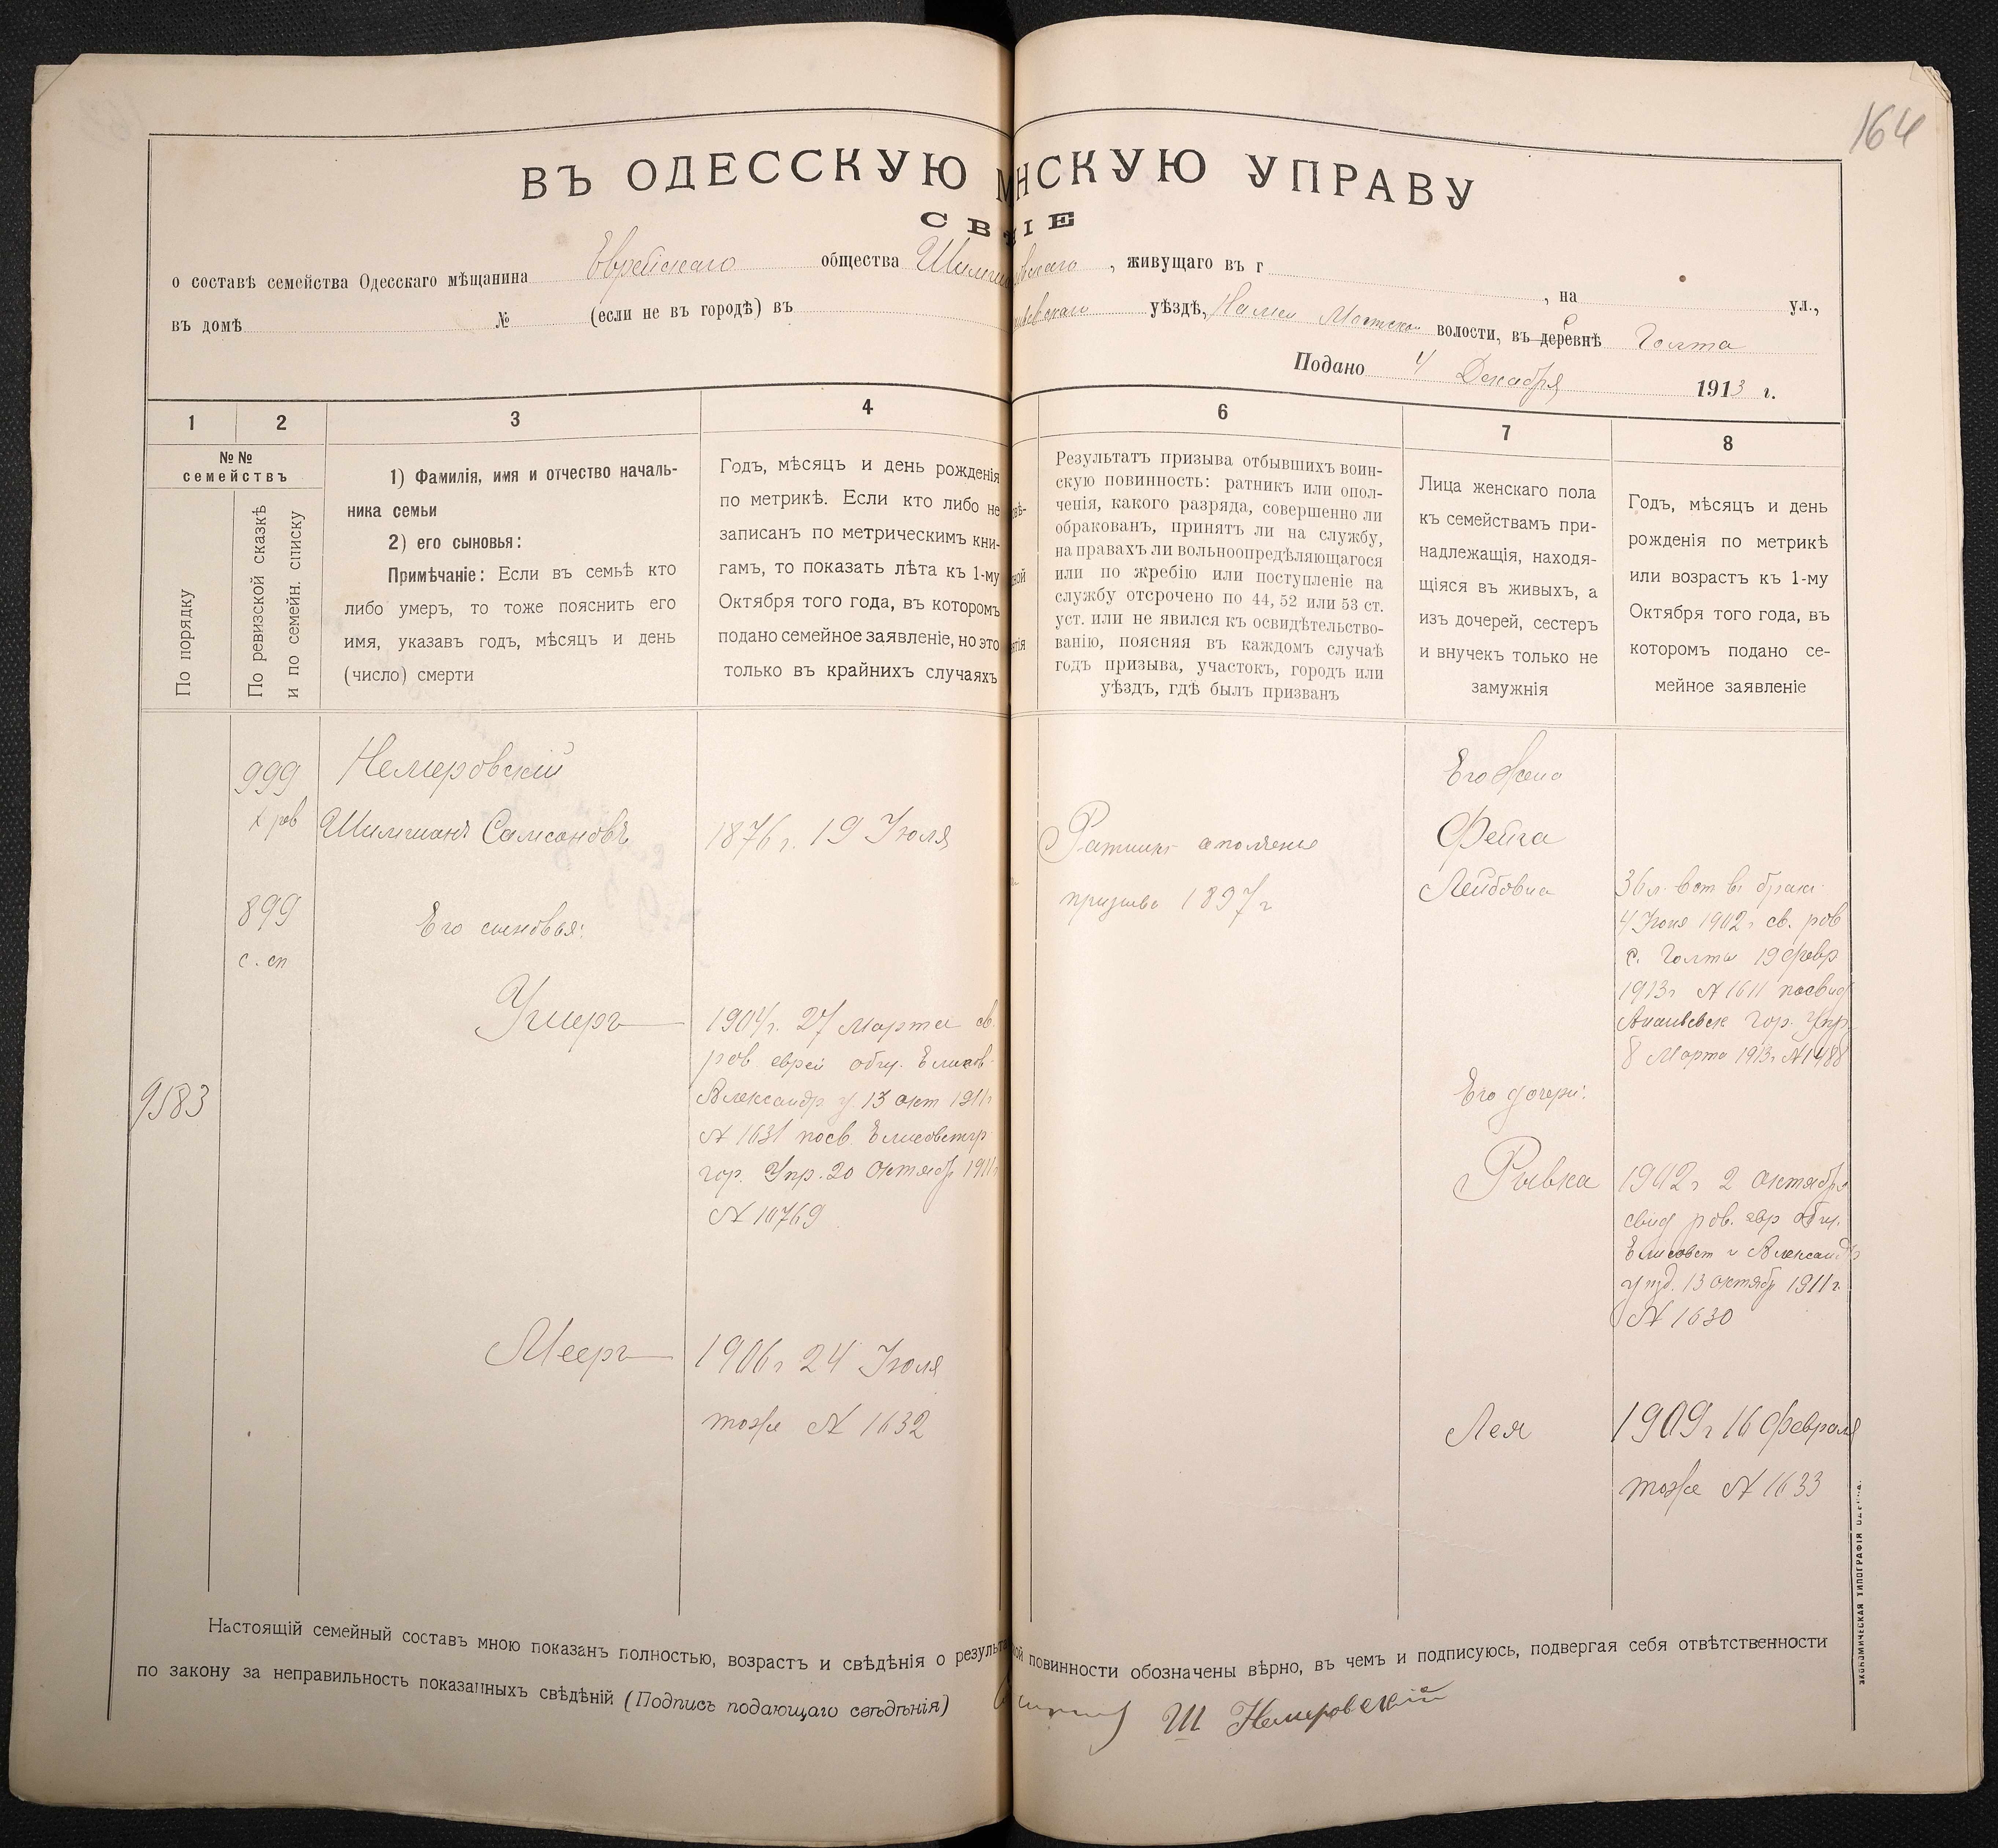 164
ВЪ ОДЕССКУЮ М НСКУЮ УПРАВУ
СВ НІЕ
о составѣ семейства Одесскаго мѣщанина Еврейскаго общества , живущаго въ г , на ул.,
въ домѣ № (если не въ городѣ) въ уѣздѣ, волости, въ деревнѣ Голта
Подано 4 Декабря 1913 г.
1 2 3 4 6 7 8
№№
семействъ
По порядку
По ревизской сказкѣ
и по семейн. списку
1) Фамилія, имя и отчество началь-
ника семьи
2) его сыновья:
Примѣчаніе: Если въ семьѣ кто
либо умеръ, то тоже пояснить его
имя, указавъ годъ, мѣсяцъ и день
(число) смерти
Годъ, мѣсяцъ и день рожденія
по метрикѣ. Если кто либо не
записанъ по метрическимъ кни-
гамъ, то показать лѣта къ 1-му
Октября того года, въ которомъ
подано семейное заявленіе, но это
только въ крайнихъ случаяхъ
Результатъ призыва отбывшихъ воин-
скую повинность: ратникъ или опол-
ченія, какого разряда, совершенно ли
обракованъ, принятъ ли на службу,
на правахъ ли вольноопредѣляющагося
или по жребію или поступленіе на
службу отсрочено по 44, 52 или 53 ст.
уст. или не явился къ освидѣтельство-
ванію, поясняя въ каждомъ случаѣ
годъ призыва, участокъ, городъ или
уѣздъ, гдѣ былъ призванъ
Лица женскаго пола
къ семействамъ при-
надлежащія, находя-
щіяся въ живыхъ, а
изъ дочерей, сестеръ
и внучекъ только не
замужнія
Годъ, мѣсяцъ и день
рожденія по метрикѣ
или возрастъ къ 1-му
Октября того года, въ
которомъ подано се-
мейное заявленіе
9583
999
899
с. сп
Немеровскій
Шимшонъ Самсоновъ
Его сыновья:
Ушеръ
Мееръ
1876 г. 19 Іюля
1904 г. 27 Марта св.
рав еврей общ. Елисав-
Александр у. 13 окт 1911 г
№ 1631 посв. Елисаветгр
гор. Упр. 20 Октября 1911 г
№ 10769
1906 г 24 Іюля
тоже № 1632
Ратникъ ополченія
призыва 1897 г
Его жена
Фейга
Лейбовна
Его дочери:
Рывка
Лея
36 л. вст въ бракъ
4 Іюня 1902 г св. рав
с. Голты 19 февр
1913 г № 1611 посвид
Ананьевск гор. Упр.
8 Марта 1913 г № 1488
1902 г 2 октября
свид рав. евр общ.
Елисавет и Александр
уѣзд. 13 октябр 1911 г.
№ 1630
1909 г 16 февраля
тоже № 1633
Настоящій семейный составъ мною показанъ полностью, возрастъ и свѣдѣнія о результа ой повинности обозначены вѣрно, въ чемъ и подписуюсь, подвергая себя отвѣтственности
по закону за неправильность показанныхъ свѣдѣній (Подпись подающаго свѣдѣнія) Ш Немировский
ЭКОНОМИЧЕСКАЯ ТИПОГРАФІЯ